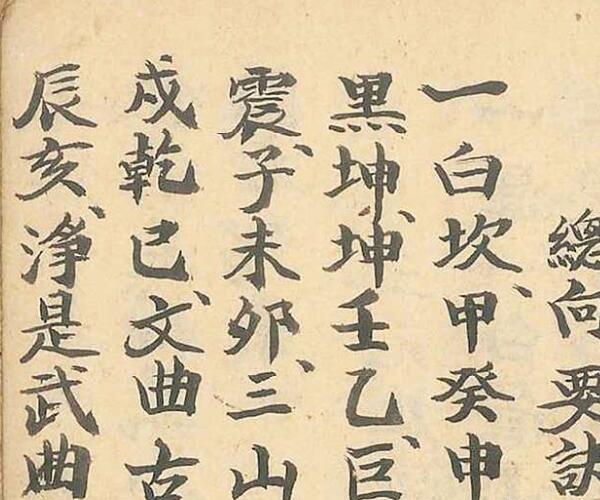 總向要訣
一白坎、甲癸申
黑坤、坤壬乙、巨
震、子未卯、三山
戍乾巳、文曲古
辰亥、淨是武曲